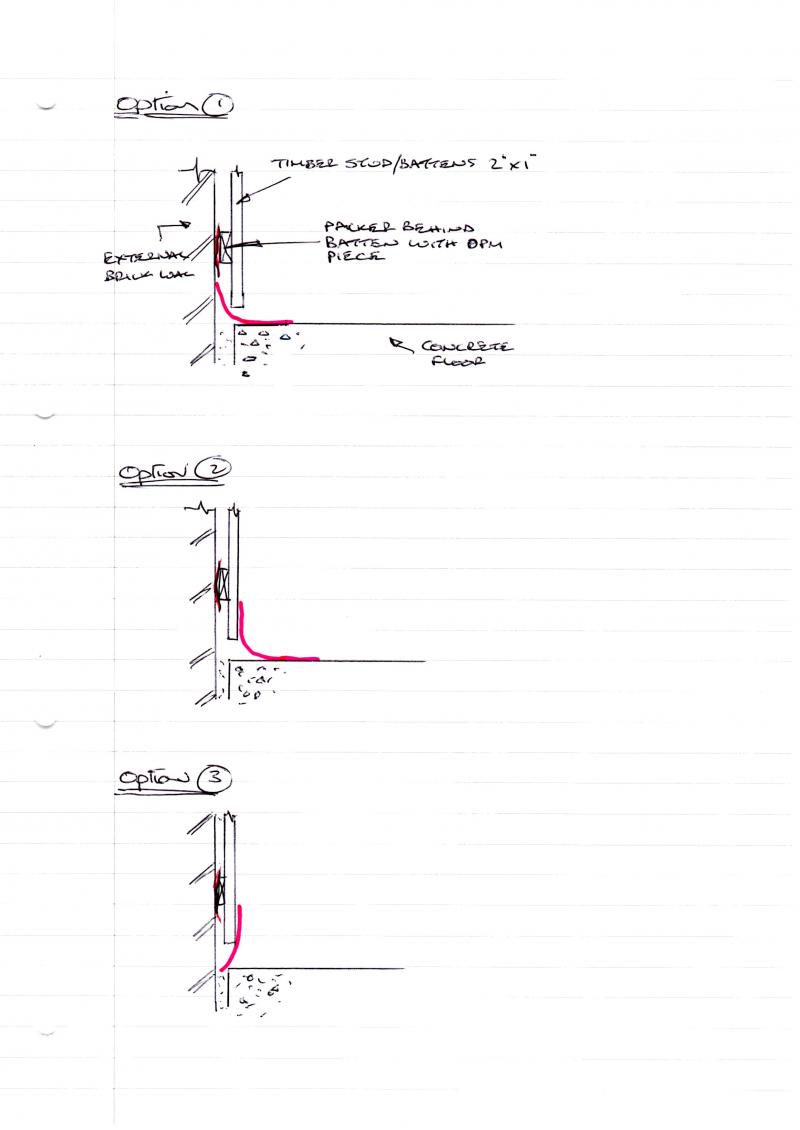 Option 1
TIMBER STUD/BATTENS 2"x1"
PACKER BEHIND
BATTEN WITH DPM
PIECE
EXTERNAL
BRICK WALL
CONCRETE
FLOOR
Option 2
Option 3